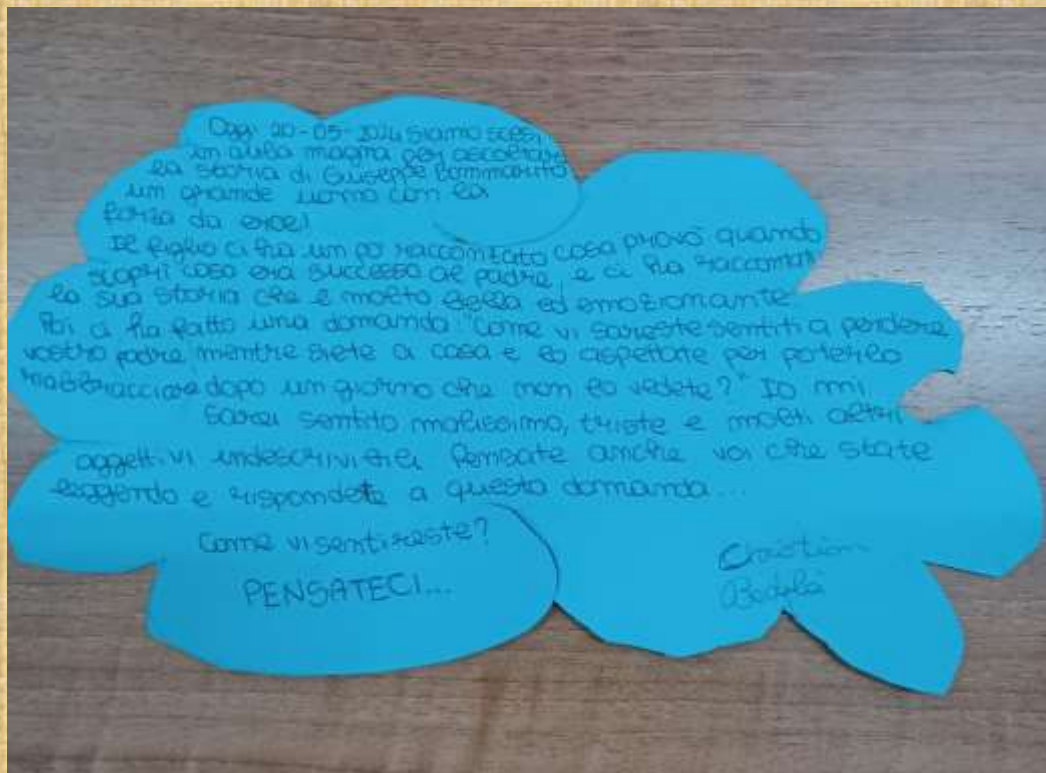 Oggi 20-05-2024 siamo scesi
in aula magna per ascoltare
la storia di Giuseppe Bommarito
un grande uomo con la
forza da eroe!
Il figlio ci ha un pò raccontato cosa provò quando
scoprì cosa era successo al padre, e ci ha raccontato
la sua storia che è molto bella ed emozionante.
Poi ci ha fatto una domanda: "Come vi sareste sentiti a perdere
vostro padre, mentre siete a casa e lo aspettate per poterlo
riabbracciare dopo un giorno che non lo vedete?" Io mi
sarei sentito malissimo, triste e molti altri
aggettivi indescrivibili. Pensate anche voi che state
leggendo e rispondete a questa domanda...
Come vi sentireste?
PENSATECI...
Christian